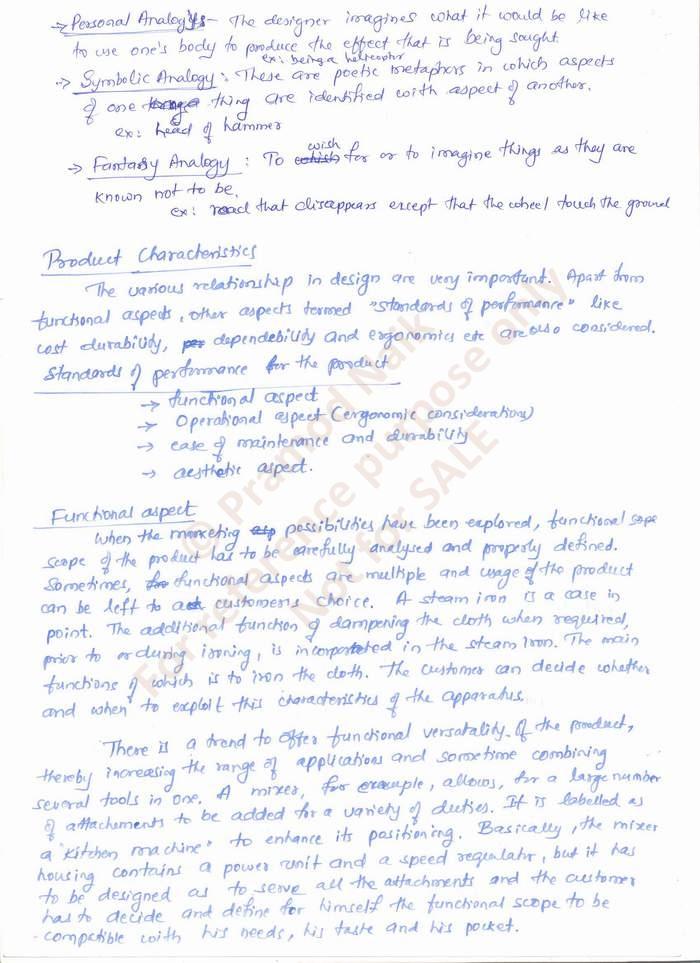 → Personal Analogys - The designer imagines what it would be like
to use one's body to produce the effect that is being sought.
ex: being a helicopter
→ Symbolic Analogy : These are poetic metaphors in which aspects
of one thing are identified with aspect of another.
ex: head of hammer
→ Fantasy Analogy : To wish for or to imagine things as they are
known not to be.
ex: road that disappears except that the wheel touch the ground
Product Characteristics
The various relationship in design are very important. Apart from
functional aspects, other aspects termed "standards of performance" like
cost durability, dependebility and ergonomics etc are also considered.
Standards of performance for the product
→ functional aspect
→ Operational aspect (ergonomic considerations)
→ ease of maintenance and durability
→ aesthetic aspect.
Functional aspect
When the marketing possibilities have been explored, functional sope
scope of the product has to be carefully analysed and properly defined.
Sometimes, functional aspects are multiple and usage of the product
can be left to customers choice. A steam iron is a case in
point. The additional function of dampening the cloth when required,
prior to or during ironing, is incorporated in the steam iron. The main
functions of which is to iron the cloth. The customer can decide whether
and when to exploit this characteristics of the apparatus.
There is a trend to offer functional versatality of the product,
thereby increasing the range of applications and sometime combining
several tools in one. A mixer, for example, allows, for a large number
of attachements to be added for a variety of duties. It is labelled as
a "kitchen machine" to enhance its positioning. Basically, the mixer
housing contains a power unit and a speed regulator, but it has
to be designed as to serve all the attachments and the customer
has to decide and define for himself the functional scope to be
compatible with his needs, his taste and his pocket.
© Pramod Naik
For reference purpose only
Not for SALE